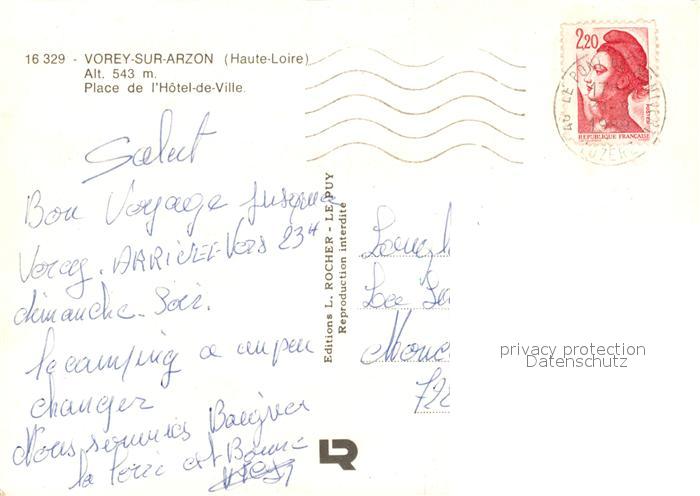 16 329 - VOREY-SUR-ARZON (Haute-Loire)
Alt. 543 m.
Place de l'Hôtel-de-Ville.
2,20
REPUBLIQUE FRANÇAISE
Salut
Bon Voyage jusque
Vorey. ARRIVEE Vers 23H
dimanche Soir.
le camping a un peu
changer
Nous sommes Baigner
la Loire est Bonne
Editions L. ROCHER - LE PUY
Reproduction interdite
LR
privacy protection
Datenschutz